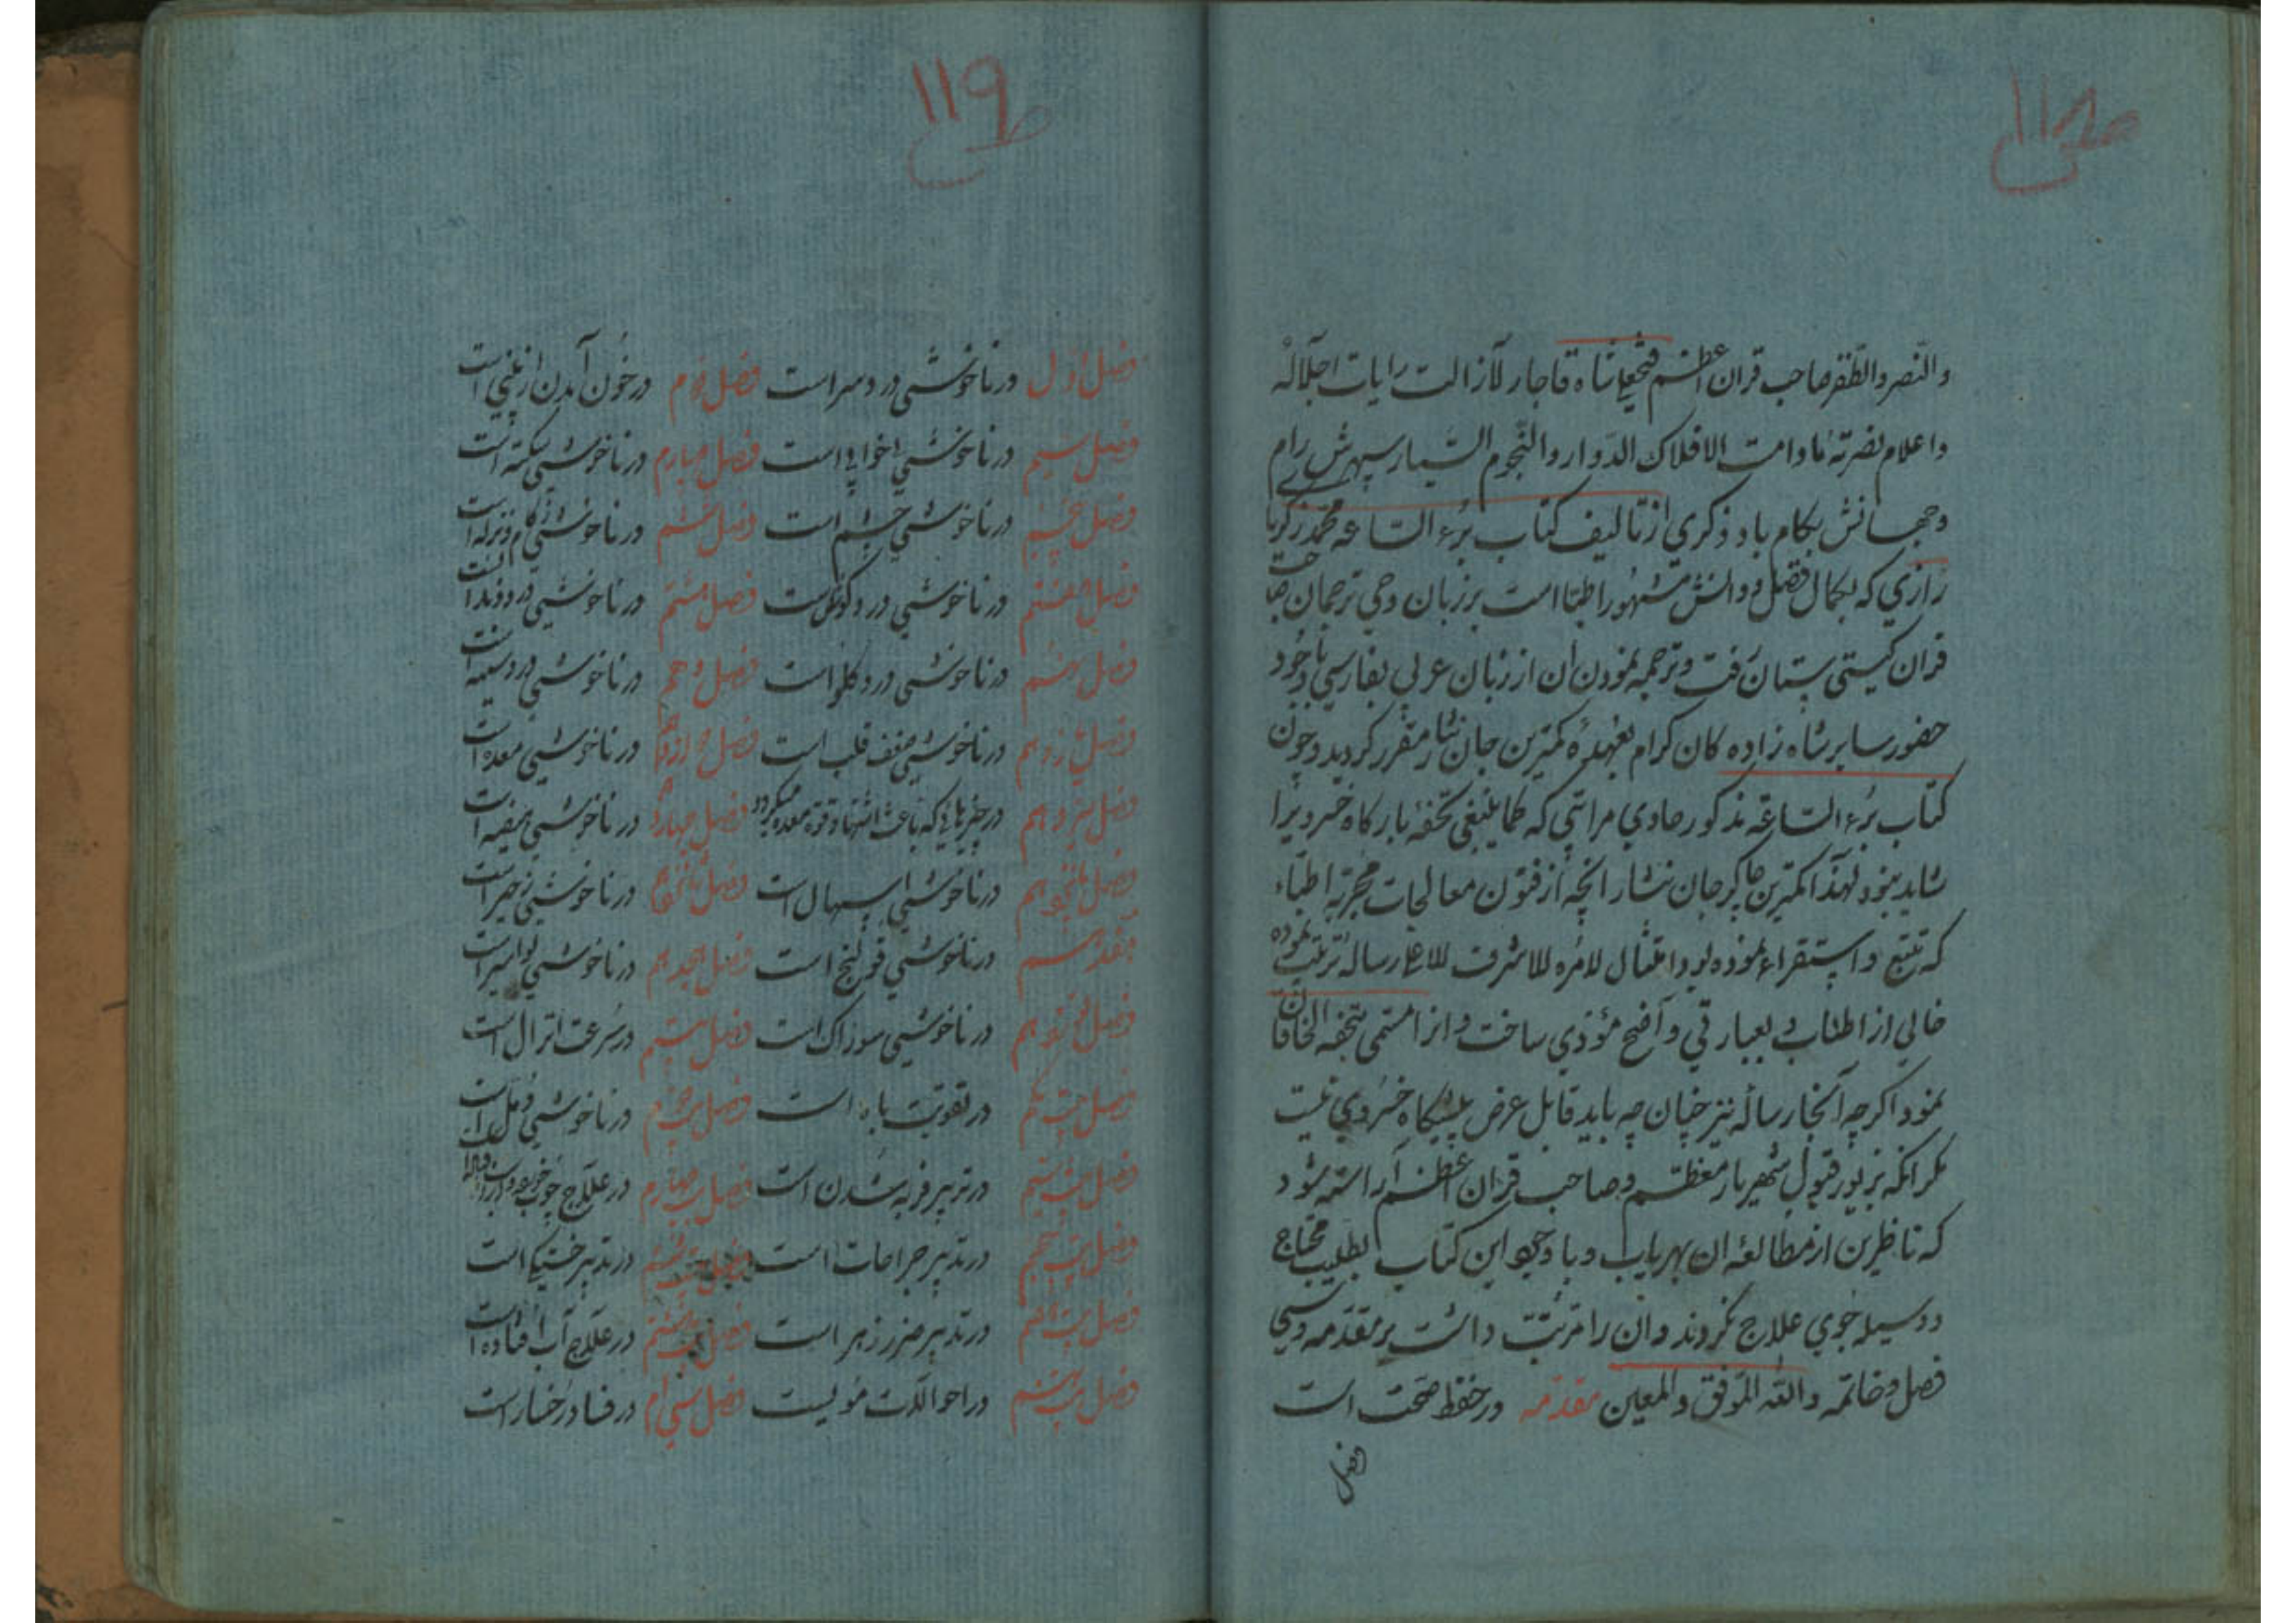 والنصر والظفر صاحب قران اعظم فتحعلیشاه قاجار لازالت رایات اجلاله
واعلام نصرته مادامت الافلاک الدوار والنجوم السیار سپهرش رام
وجهانش بکام باد ذکری از تالیف کتاب برء الساعه محمد زکریا
رازی که بکمال فضل و دانش مشهور اطبا است بر زبان وحی ترجمان صاحب
قران کیتی ستان رفت و ترجمه نمودن ان از زبان عربی بفارسی باوجود
حضور سایر شاه زاده کان کرام بعهده کمترین جان نثار مقرر کردید و چون
کتاب برء الساعه مذکور حاوی مراتبی که کما ینبغی تحفه بارکاه خسرو یرا
شاید نبود لهذا کمترین چاکر جان نثار انچه از فنون معالجات مجربه اطباء
که تتبع و استقراء نموده بود امتثال لامره للاشرف للاعلی رساله ترتیب نموده
خالی از اطناب و بعبارتی واضح مؤدی ساخت و انرا مسمی بتحفه الخاقان
نمود اکرچه انجا رساله نیز چنان چه باید قابل عرض پیشکاه خسروی نیست
مکر انکه بزیور قبول شهریار معظم و صاحب قران اعظم آراسته شود
که ناظرین از مطالعه ان بهریاب و با وجود این کتاب بطبیب محتاج
و وسیله جوی علاج نکروند و ان را مرتب داشت بر مقدمه و سی
فصل و خاتمه والله الموفق والمعین مقدمه در حفظ صحت است
فصل
۱۱۹
فصل اول در ناخوشی درد سر است فصل دوم در خون آمدن از بینی است
فصل سیم در ناخوشی بی خوابی است فصل چهارم در ناخوشی سکته است
فصل پنجم در ناخوشی چشم است فصل ششم در ناخوشی زکام و نزله است
فصل هفتم در ناخوشی درد کوش است فصل هشتم در ناخوشی درد دندان است
فصل نهم در ناخوشی درد کلو است فصل دهم در ناخوشی درد سینه است
فصل یازدهم در ناخوشی ضعف قلب است فصل دوازدهم در ناخوشی معده است
فصل سیزدهم در چیزهائی که باعث اشتها و قوه معده میکردد فصل چهاردهم در ناخوشی هیضه است
فصل پانزدهم در ناخوشی اسهال است فصل شانزدهم در ناخوشی زحیر است
هفدهم در ناخوشی قولنج است فصل هجدهم در ناخوشی بواسیر است
فصل نوزدهم در ناخوشی سوزاک است فصل بیستم در سرعت انزال است
فصل بیست یکم در تقویت باه است فصل در ناخوشی دمل است
فصل بیست سیم در تدبیر فربه شدن است فصل بیست چهارم در علاج چوب خورده
فصل بیست پنجم در تدبیر جراحات است فصل بیست ششم در تدبیر خستکی است
فصل بیست در تدبیر ضرر زهر است فصل در علاج آب افتاده است
فصل بیست نهم در احوالات مو لیست فصل سی ام در فساد رخسار است